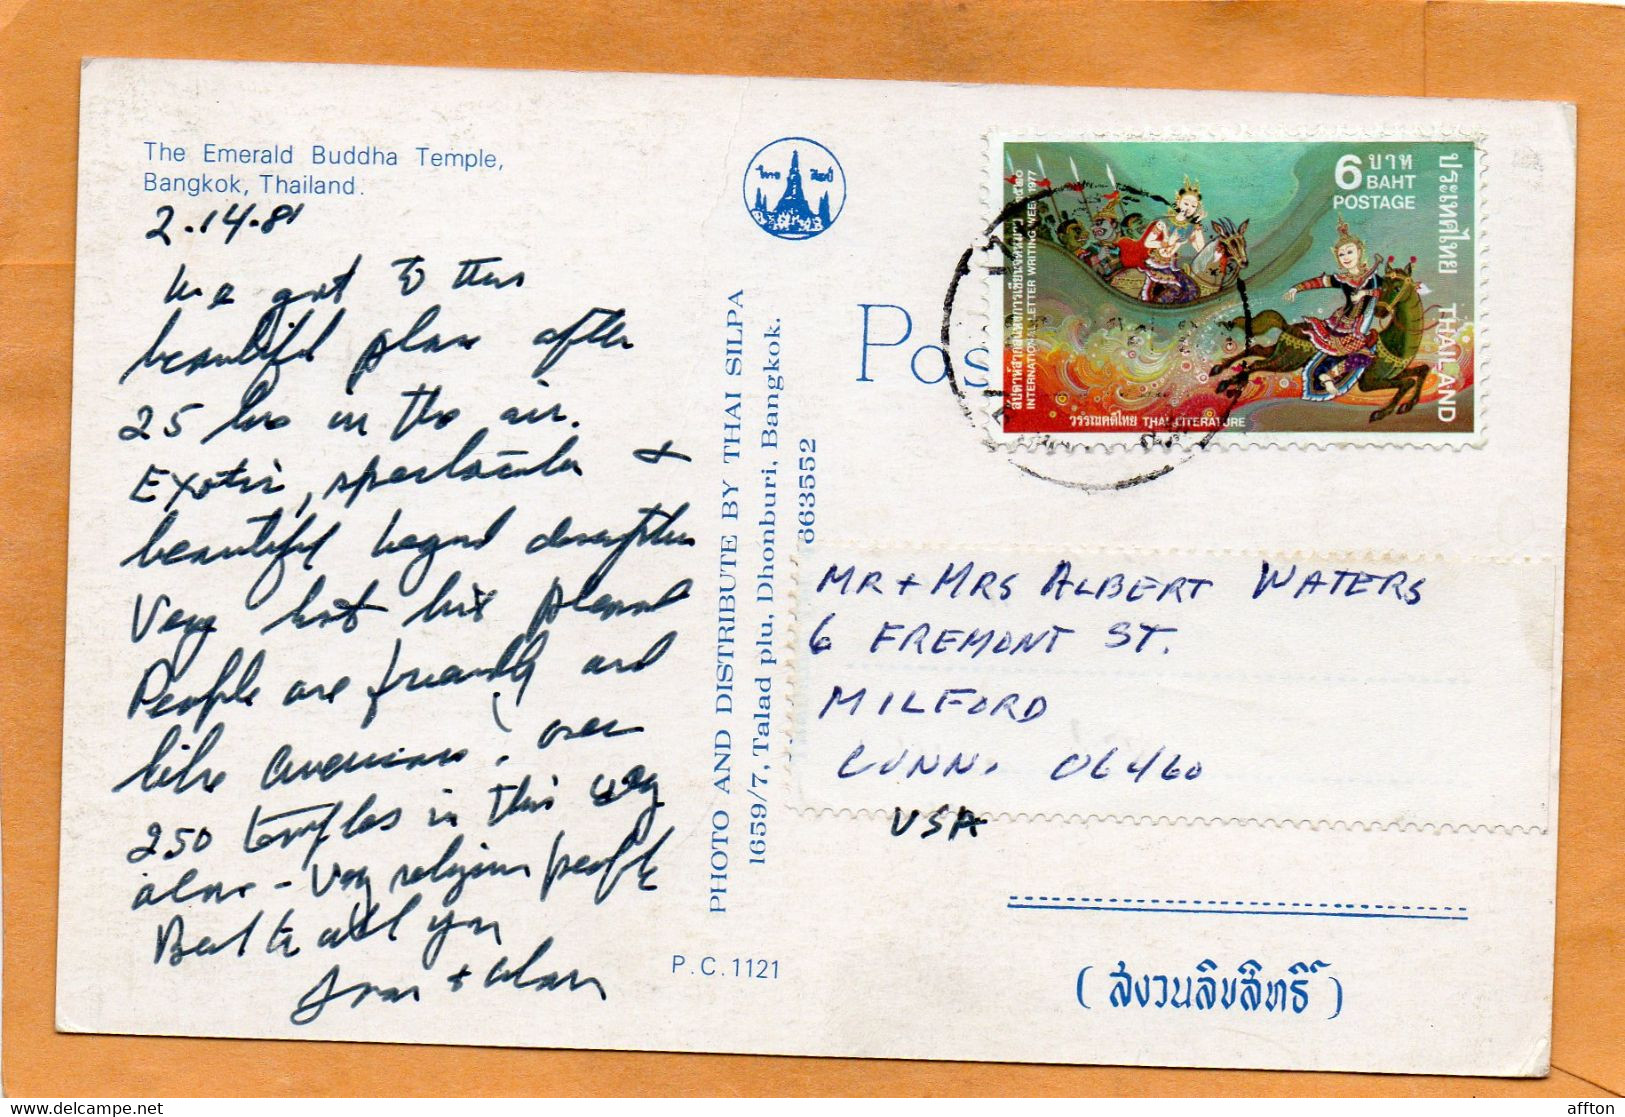 The Emerald Buddha Temple,
Bangkok, Thailand.
2.14.81
We got to this
beautiful place after
25 hrs in the air.
Exotic, spectacular +
beautiful beyond description
Very hot but pleasant
People are friendly and
like Americans. over
250 temples in this city
alone - Very religious people
Best to all you
+ Alan
ไทย ศิลป์
PHOTO AND DISTRIBUTE BY THAI SILPA
1659/7, Talad plu, Dhonburi, Bangkok.
863552
P.C.1121
Pos
6 บาท
BAHT
POSTAGE
ประเทศไทย THAILAND
สัปดาห์สากลแห่งการเขียนจดหมาย ๒๕๒๐
INTERNATIONAL LETTER WRITING WEEK 1977
วรรณคดีไทย THAI LITERATURE
MR + MRS ALBERT WATERS
6 FREMONT ST.
MILFORD
CONN. 06460
USA
(สงวนลิขสิทธิ์)
affton